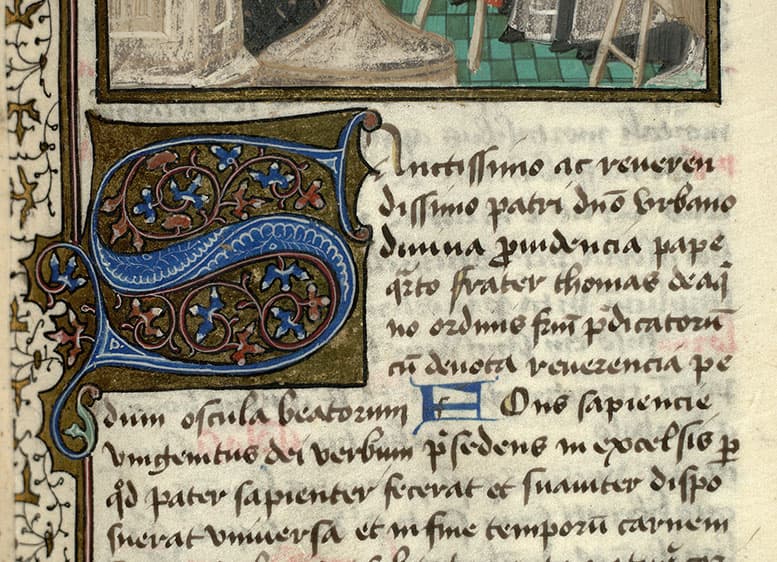 Sanctissimo ac reueren
dissimo patri dn̄o vrbano
diuina ꝓuidencia pape
qͣrto frater thomas de aq̄
no ordinis frm̄ p̄dicatorū
cū deuota reuerencia pe
dum oscula beatorum FOns sapiencie
vnigenitus dei verbum p̄sedens in excelsis ꝑ
qd̄ pater sapienter fecerat et suauiter dispo
suerat vniuersa et in fine temporū carnem